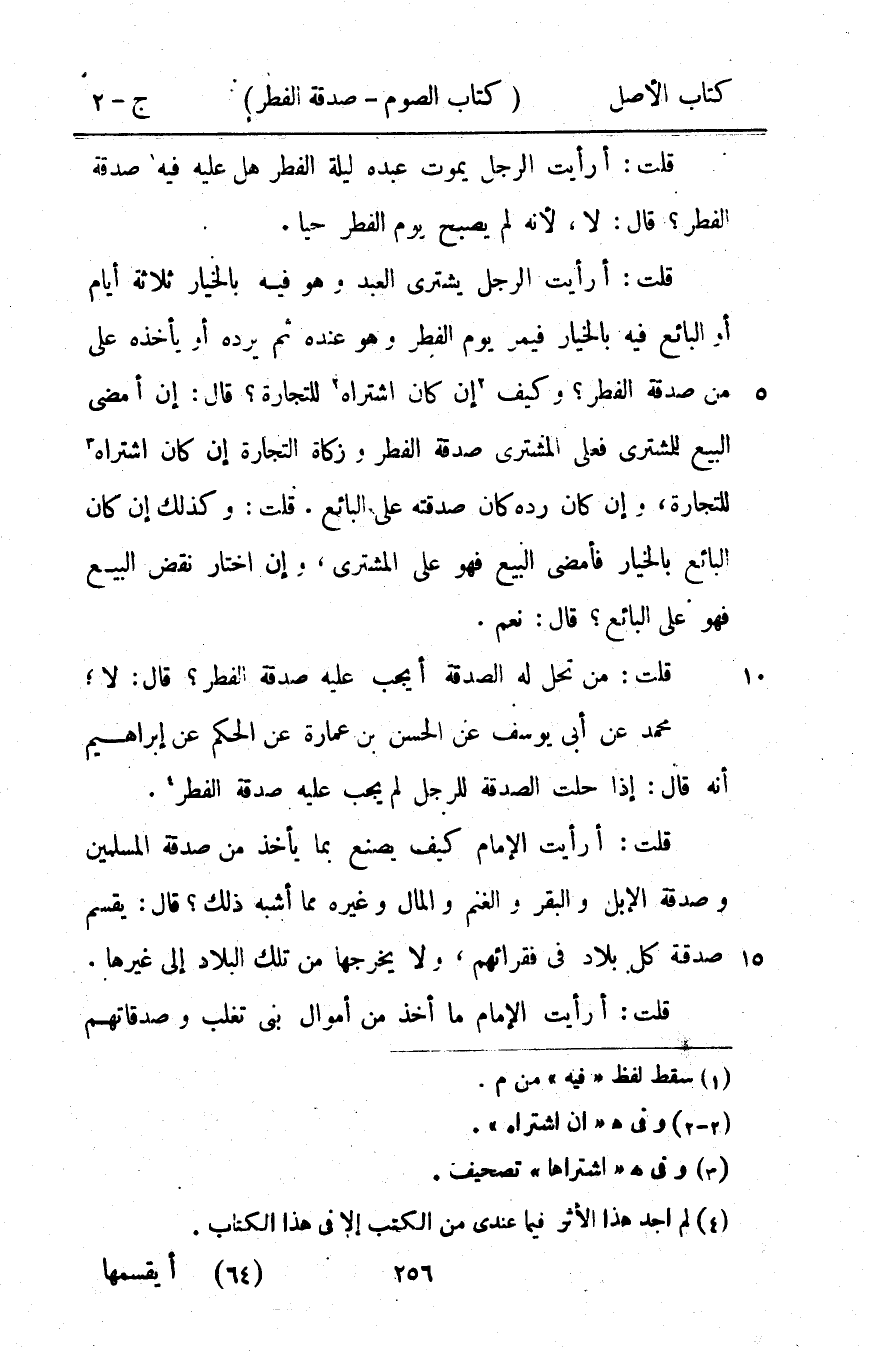 كتاب الأصل ( كتاب الصوم - صدقة الفطر ) ج - ٢
قلت : أ رأيت الرجل يموت عبده ليلة الفطر هل عليه فيه١ صدقة
الفطر ؟ قال : لا ، لأنه لم يصبح يوم الفطر حيا .
قلت : أ رأيت الرجل يشترى العبد و هو فيه بالخيار ثلاثة أيام
أو البائع فيه بالخيار فيمر يوم الفطر و هو عنده ثم يرده أو يأخذه على
٥ من صدقة الفطر ؟ و كيف ٢إن كان اشتراه٢ للتجارة ؟ قال : إن أمضى
البيع للشترى فعلى المشترى صدقة الفطر و زكاة التجارة إن كان اشتراه٣
للتجارة ، و إن كان رده كان صدقته على البائع . قلت : و كذلك إن كان
البائع بالخيار فأمضى البيع فهو على المشترى ، و إن اختار نقض البيع
فهو على البائع ؟ قال : نعم .
١٠ قلت : من تحل له الصدقة أ يجب عليه صدقة الفطر ؟ قال : لا ؛
محمد عن أبى يوسف عن الحسن بن عمارة عن الحكم عن إبراهيم
أنه قال : إذا حلت الصدقة للرجل لم يجب عليه صدقة الفطر٤ .
قلت : أ رأيت الإمام كيف يصنع بما يأخذ من صدقة المسلمين
و صدقة الإبل و البقر و الغنم و المال و غيره مما أشبه ذلك ؟ قال : يقسم
١٥ صدقة كل بلاد فى فقرائهم ، و لا يخرجها من تلك البلاد إلى غيرها .
قلت : أ رأيت الإمام ما أخذ من أموال بنى تغلب و صدقاتهم
(١) سقط لفظ « فيه » من م .
(٢-٢) و فى ه « ان اشتراه » .
(٣) و فى ه « اشتراها » تصحيف .
(٤) لم اجد هذا الأثر فيما عندى من الكتب إلا فى هذا الكتاب .
٢٥٦ (٦٤) أ يقسمها